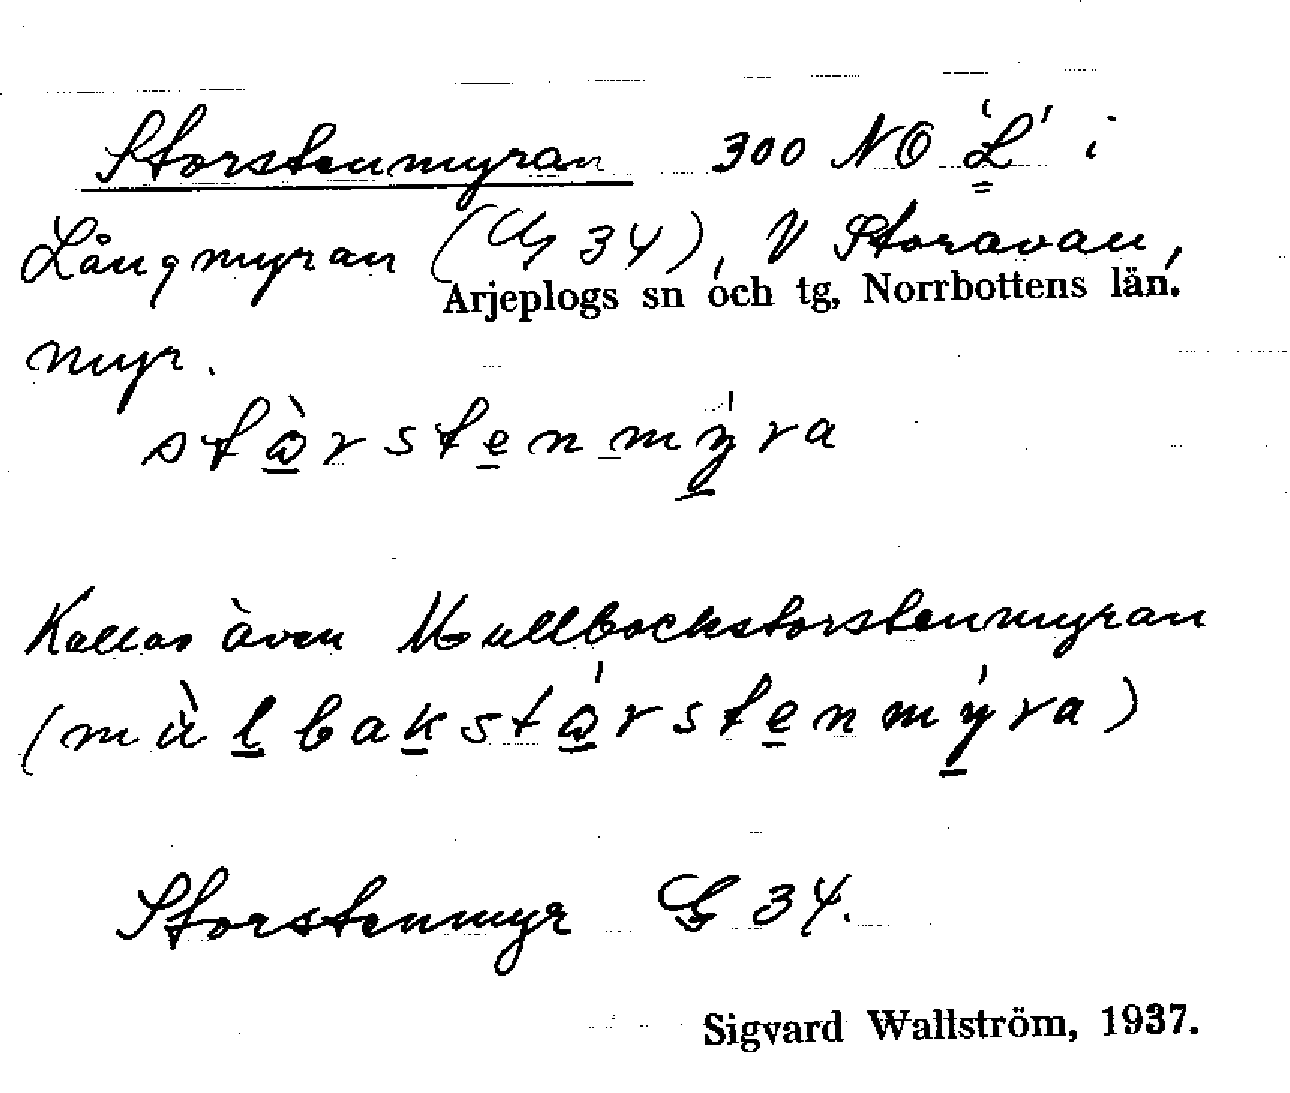 Storstenmyran 300 NO 'L' i
Långmyran (G 34), V Storavan,
Arjeplogs sn och tg, Norrbottens län.
myr.
stòrstenmýra
Kallas även Mullbockstorstenmyran
(mùlbakstórstenmýra)
Storstenmyr G 34.
Sigvard Wallström, 1937.